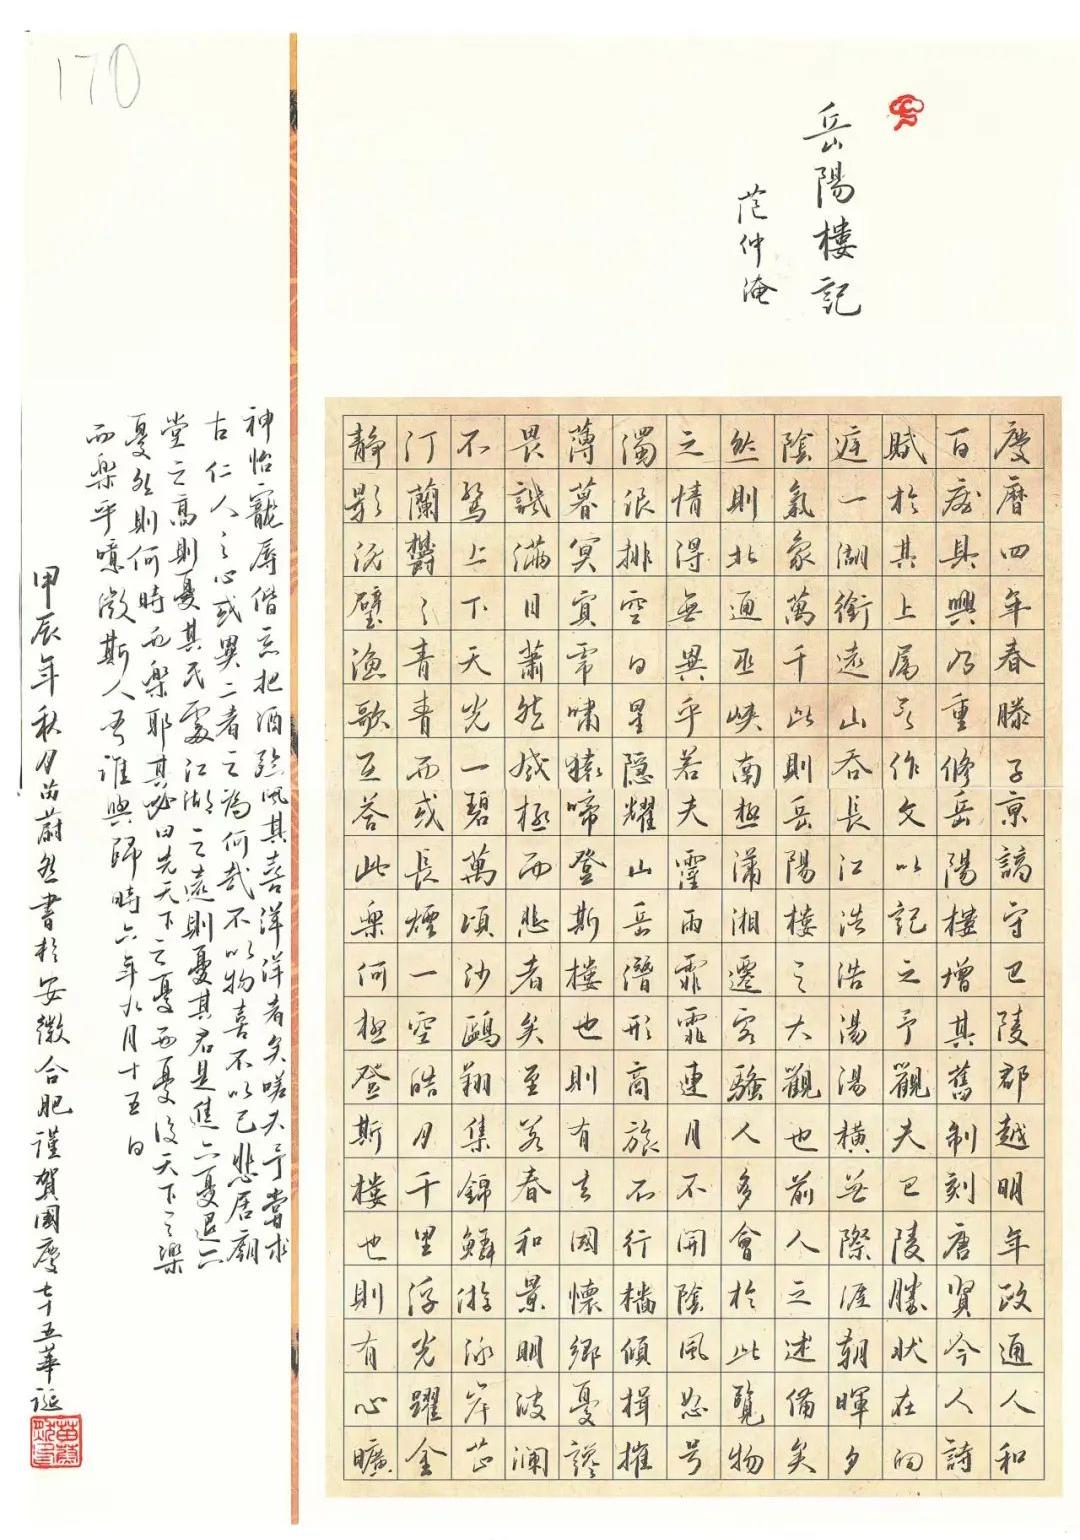 170
岳陽樓記
范仲淹
慶曆四年春滕子京謫守巴陵郡越明年政通人和
百廢具興乃重修岳陽樓增其舊制刻唐賢今人詩
賦於其上屬予作文以記之予觀夫巴陵勝狀在洞
庭一湖銜遠山吞長江浩浩湯湯橫無際涯朝暉夕
陰氣象萬千此則岳陽樓之大觀也前人之述備矣
然則北通巫峽南極瀟湘遷客騷人多會於此覽物
之情得無異乎若夫霪雨霏霏連月不開陰風怒号
濁浪排空日星隱耀山岳潛形商旅不行檣傾楫摧
薄暮冥冥虎嘯猿啼登斯樓也則有去國懷鄉憂讒
畏譏滿目蕭然感極而悲者矣至若春和景明波瀾
不驚上下天光一碧萬頃沙鷗翔集錦鱗游泳岸芷
汀蘭鬱々青青而或長煙一空皓月千里浮光躍金
静影沉璧漁歌互答此樂何極登斯樓也則有心曠
神怡寵辱偕忘把酒臨風其喜洋洋者矣嗟夫予嘗求
古仁人之心或異二者之為何哉不以物喜不以己悲居廟
堂之高則憂其民處江湖之遠則憂其君是進亦憂退亦
憂然則何時而樂耶其必曰先天下之憂而憂後天下之樂
而樂乎噫微斯人吾誰與歸時六年九月十五日
甲辰年秋月苗蔚然書於安徽合肥謹賀國慶七十五華誕